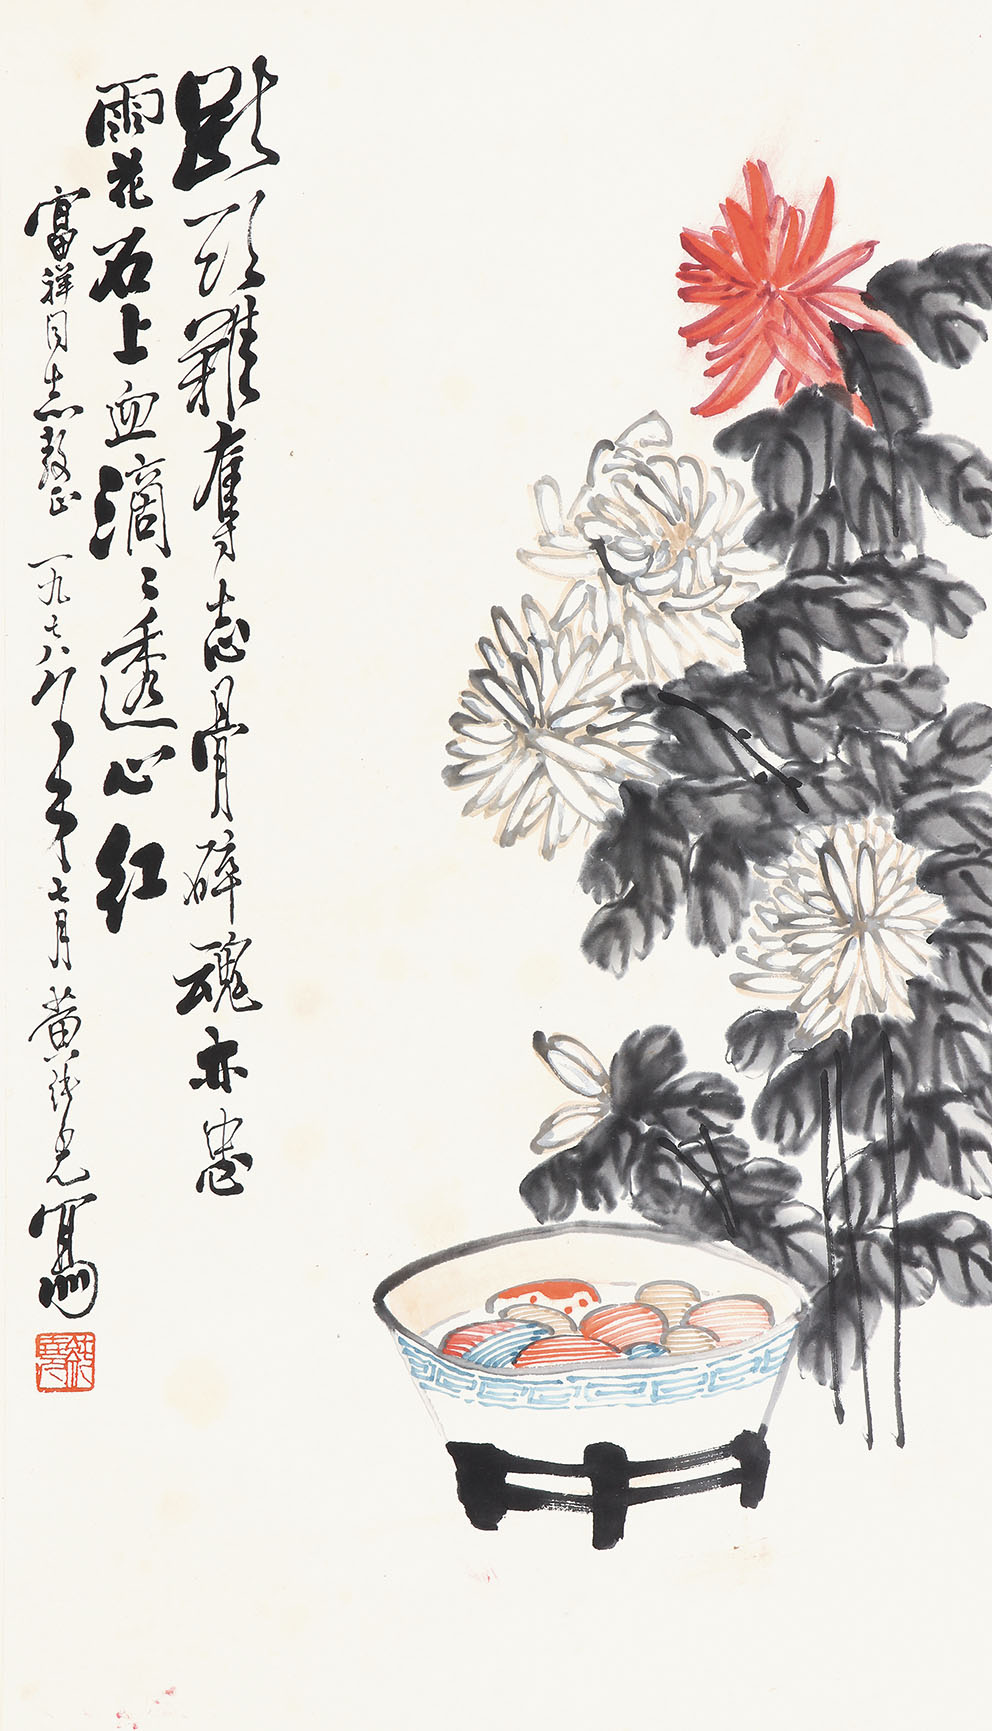 断头难夺志骨碎魂亦忠
雨花石上血滴〻透心红
富祥同志教正 一九七八年七月 黄纯尧写